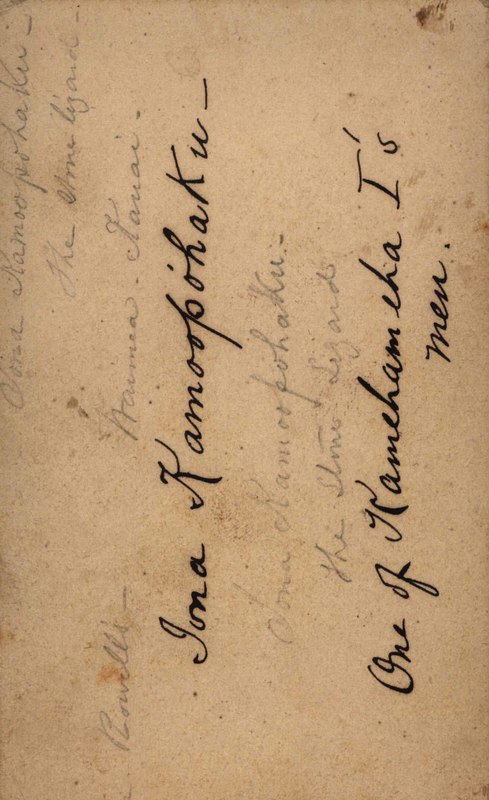 Iona Kamoopohaku —
The Stone lizard —
Rowell's — Waimea. Kauai.
Iona Kamoopóhaku —
Iona Kamoopohaku —
The Stone Lizard
One of Kamehameha I's
men.